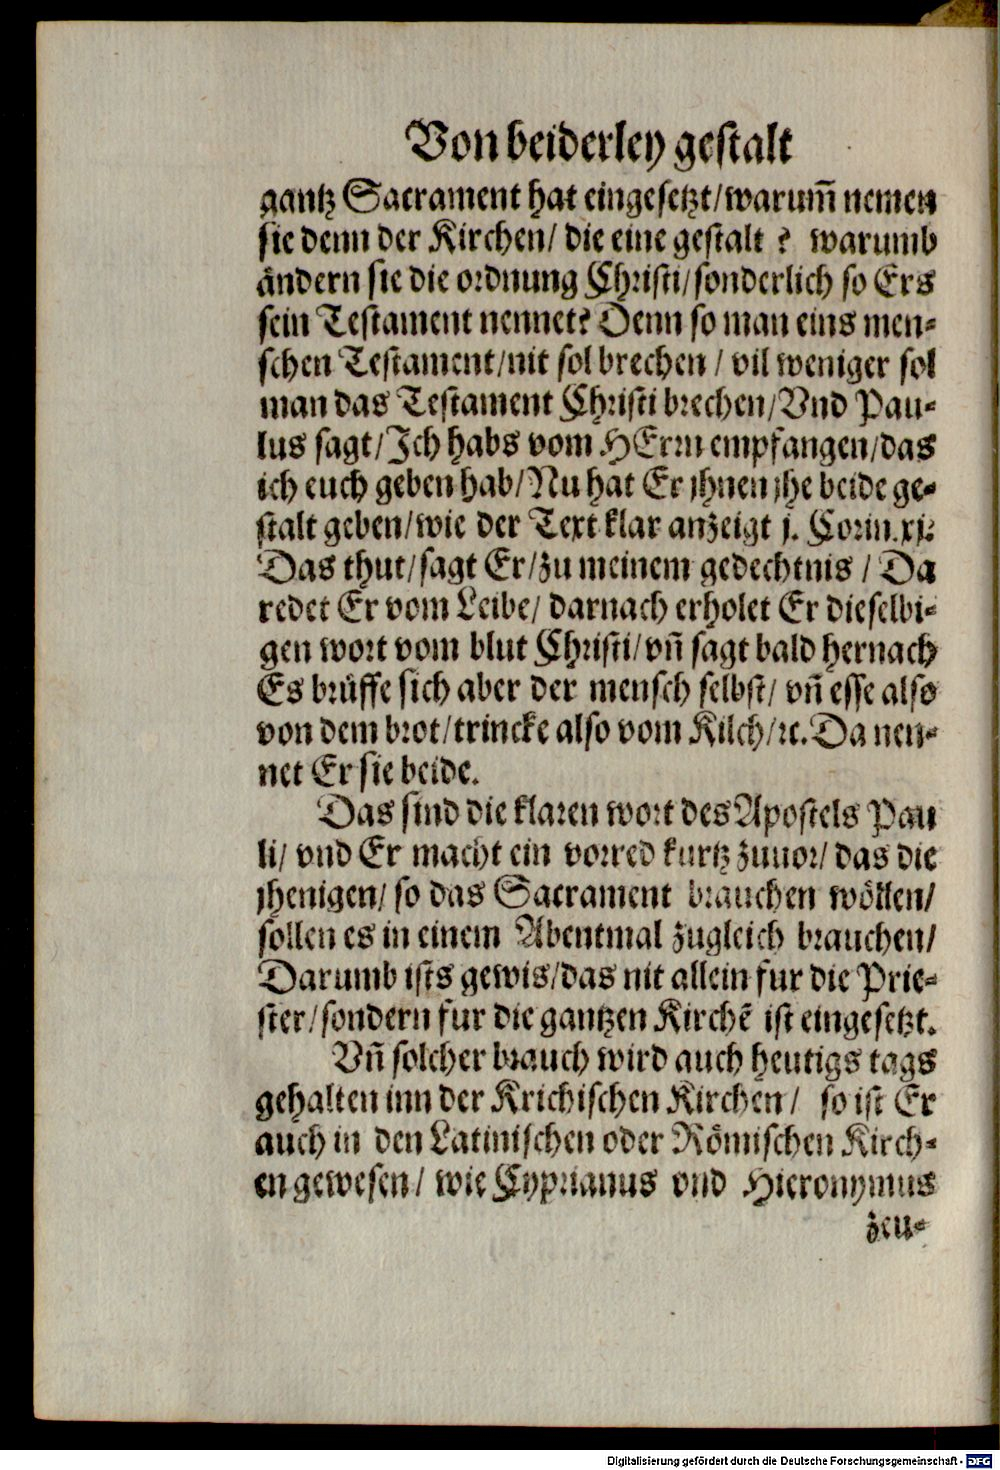 Von beiderley gestalt
gantz Sacrament hat eingesetzt/warum̃ nemen
sie denn der Kirchen/ die eine gestalt ? warumb
ändern sie die ordnung Christi/sonderlich so Ers
sein Testament nennet? Denn so man eins men-
schen Testament/nit sol brechen / vil weniger sol
man das Testament Christi brechen/Vnd Pau-
lus sagt/Ich habs vom HErrn empfangen/das
ich euch geben hab/Nu hat Er jhnen jhe beide ge-
stalt geben/wie der Text klar anzeigt j. Corin.xj:
Das thut/sagt Er/zu meinem gedechtnis / Da
redet Er vom Leibe/ darnach erholet Er dieselbi-
gen wort vom blut Christi/vñ sagt bald hernach
Es brüffe sich aber der mensch selbst/ vñ esse also
von dem brot/trincke also vom Kilch/ꝛc. Da nen-
net Er sie beide.
Das sind die klaren wort des Apostels Pau
li/ vnd Er macht ein vorred kurtz zuuor/ das die
jhenigen/ so das Sacrament brauchen wöllen/
sollen es in einem Abentmal zugleich brauchen/
Darumb ists gewis/das nit allein fur die Prie-
ster/sondern fur die gantzen Kirchē ist eingesetzt.
Vñ solcher brauch wird auch heutigs tags
gehalten inn der Krichischen Kirchen/ so ist Er
auch in den Latinischen oder Römischen Kirch-
en gewesen/ wie Cyprianus vnd Hieronymus
zeu-
Digitalisierung gefördert durch die Deutsche Forschungsgemeinschaft - DFG